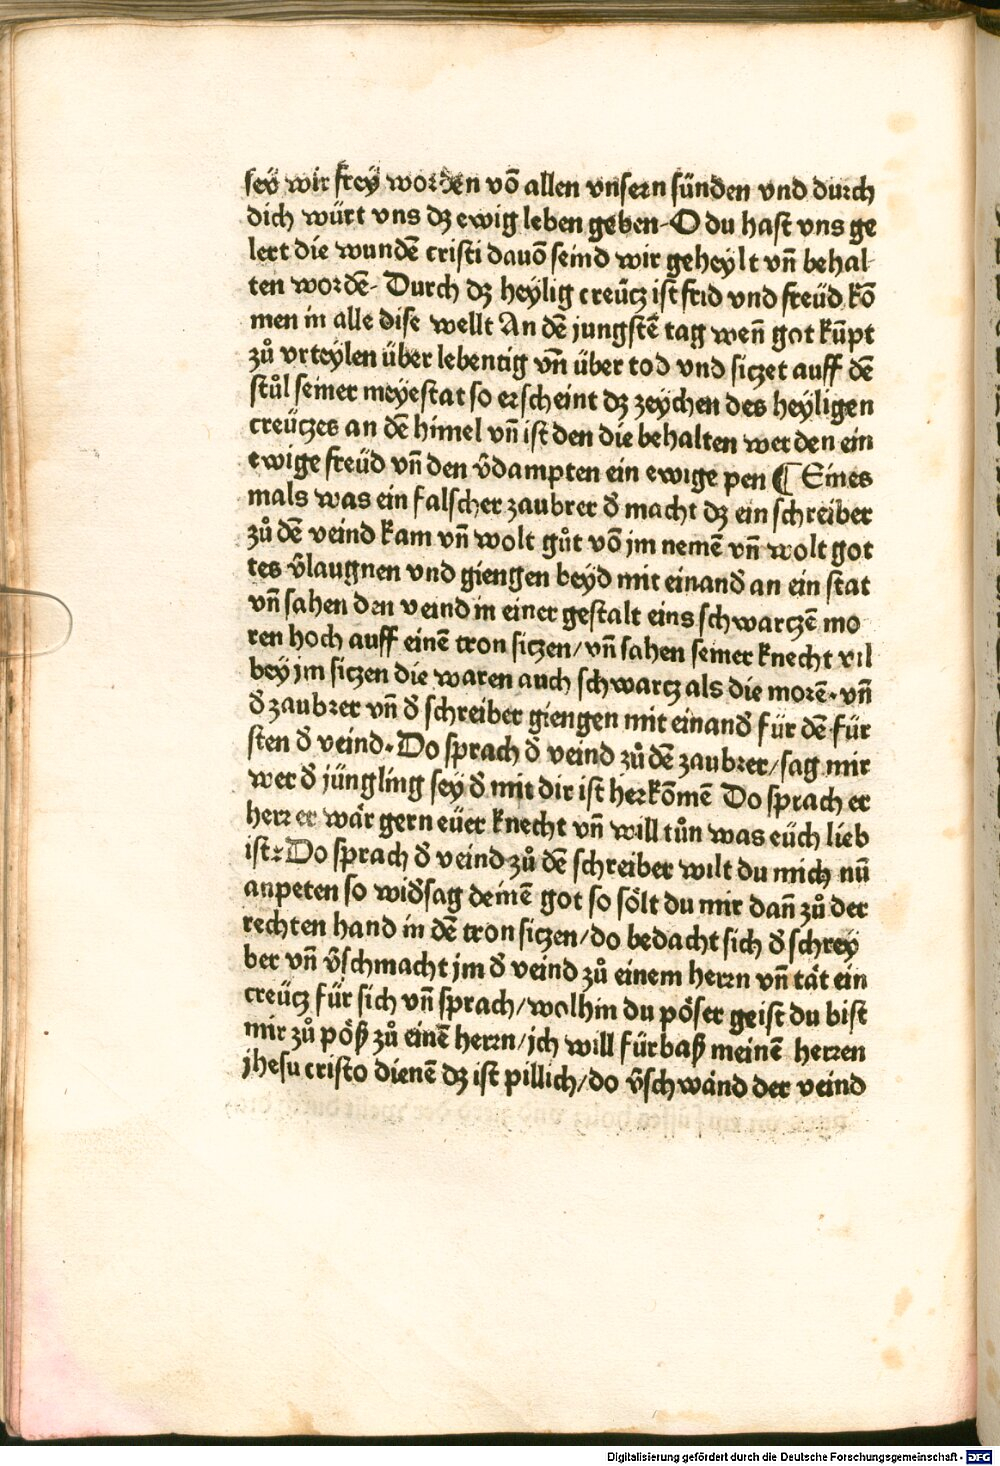 sey wir frey worden vō allen vnsern sünden vnd durch
dich würt vns dz ewig leben geben. O du hast vns ge
lert die wundē cristi dauō seind wir geheylt vn̄ behal-
ten wordē. Durch dz heylig creücz ist frid vnd freüd kō
men in alle dise wellt An dē jungstē tag wen̄ got kūpt
zů vrteylen über lebentig vn̄ über tod vnd siczet auff dē
stůl seiner meyestat so erscheint dz zeychen des heyligen
creüczes an dē himel vn̄ ist den die behalten werden ein
ewige freüd vn̄ den v̄dampten ein ewige pen ¶ Eines
mals was ein falscher zaubrer đ macht dz ein schreiber
zů dē veind kam vn̄ wolt gůt vō jm nemē vn̄ wolt got
tes v̄laugnen vnd giengen beyd mit einanđ an ein stat
vn̄ sahen den veind in einer gestalt eins schwarczē mo
ren hoch auff einē tron siczen/ vn̄ sahen seiner knecht vil
bey jm siczen die waren auch schwarcz als die morē. vn̄
đ zaubrer vn̄ đ schreiber giengen mit einanđ für dē für
sten đ veind. Do sprach đ veind zů dē zaubrer/ sag mir
wer đ jüngling sey đ mit dir ist herkōmē Do sprach er
herr er wär gern eüer knecht vn̄ will tůn was eüch lieb
ist. Do sprach đ veind zů dē schreiber wilt du mich nū
anpeten so widsag deinē got so sölt du mir dan̄ zů der
rechten hand in dē tron siczen/ do bedacht sich đ schrey
ber vn̄ v̄schmacht jm đ veind zů einem herrn vn̄ tät ein
creücz für sich vn̄ sprach/ wolhin du pöser geist du bist
mir zů pöß zů einē herrn/ ich will fürbaß meinē herren
jhesu cristo dienē dz ist pillich/ do v̄schwand der veind
Digitalisierung gefördert durch die Deutsche Forschungsgemeinschaft - DFG